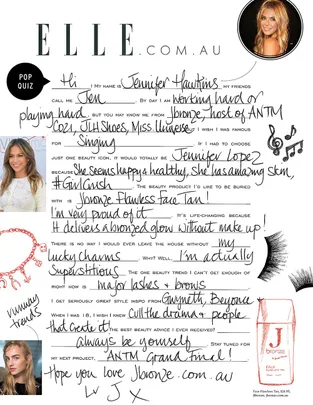 ELLE.COM.AU
POP QUIZ
Hi ! MY NAME IS Jennifer Hawkins MY FRIENDS
CALL ME Jen . BY DAY I AM working hard or
playing hard BUT YOU MAY KNOW ME FROM Jbronze, host of ANTM
Cozi, JLH Shoes, Miss Universe. I WISH I WAS FAMOUS
FOR Singing . IF I HAD TO CHOOSE
JUST ONE BEAUTY ICON, IT WOULD TOTALLY BE Jennifer Lopez
BECAUSE She seems happy & healthy, she has amazing skin,
#GirlCrush . THE BEAUTY PRODUCT I'D LIKE TO BE BURIED
WITH IS Jbronze Flawless Face Tan!
I'm very proud of it . IT'S LIFE-CHANGING BECAUSE
It delivers a bronzed glow without make up!
THERE IS NO WAY I WOULD EVER LEAVE THE HOUSE WITHOUT my
lucky charms . WHY? WELL, I'm actually
Superstitious . THE ONE BEAUTY TREND I CAN'T GET ENOUGH OF
RIGHT NOW IS major lashes & brows
I GET SERIOUSLY GREAT STYLE INSPO FROM Gwyneth, Beyonce
WHEN I WAS 18, I WISH I KNEW cull the drama & people
that create it! THE BEST BEAUTY ADVICE I EVER RECEIVED?
always be yourself . STAY TUNED FOR
MY NEXT PROJECT, ANTM Grand Final!
Hope you love Jbronze.com.au
Lv J X
runway trends
J
bronze